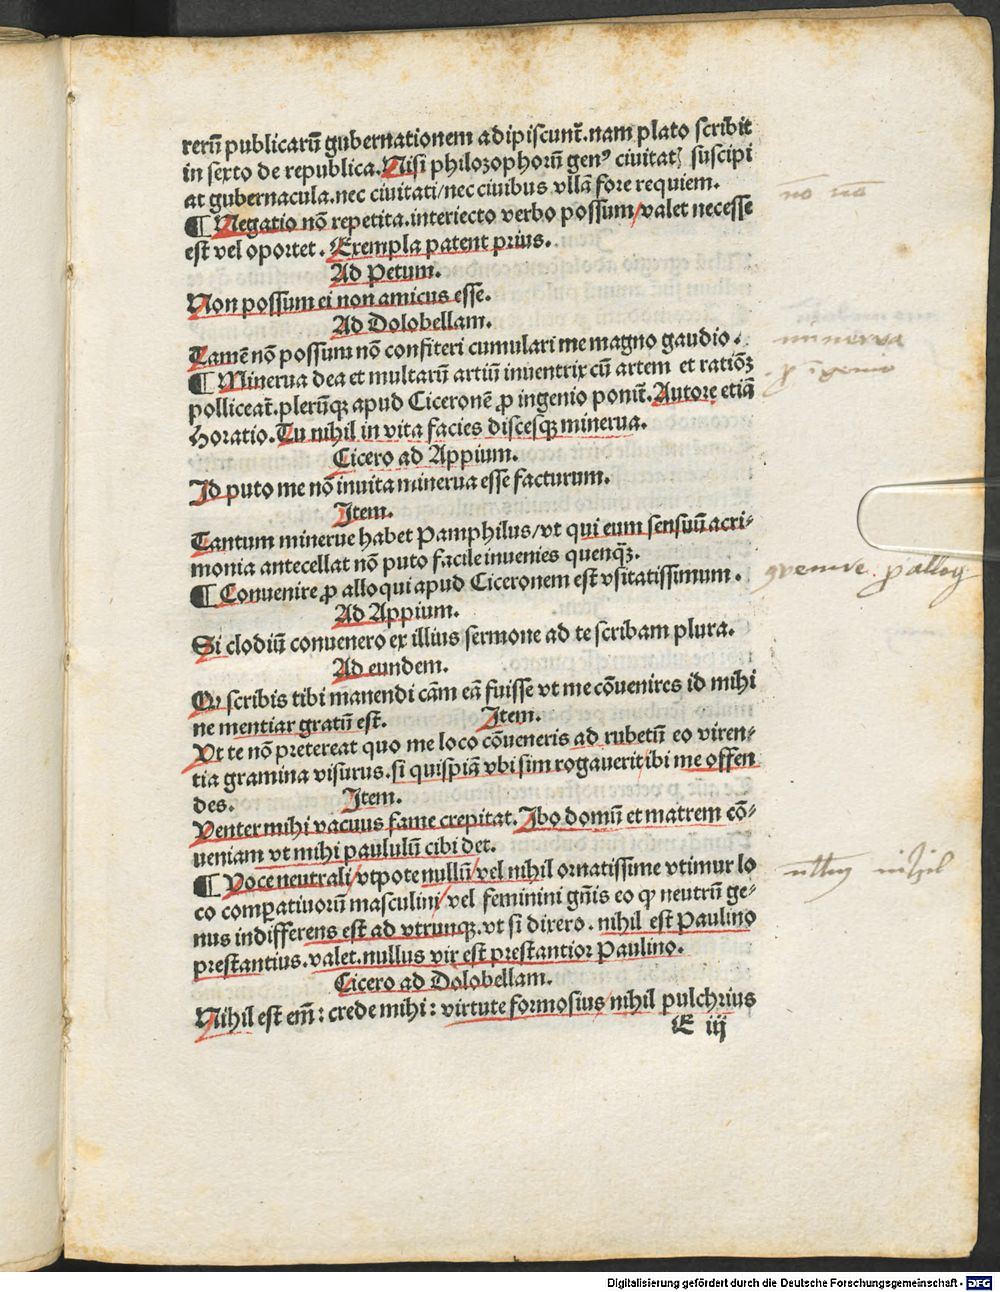 rerū publicarū gubernationem adipiscunt̄. nam plato scribit
in sexto de republica. Nisi philozophorū genꝰ ciuitatꝭ suscipi
at gubernacula. nec ciuitati/ nec ciuibus vllā fore requiem.
¶ Negatio nō repetita. interiecto verbo possum/ valet necesse
est vel oportet. Exempla patent prius.
Ad Petum.
Non possum ei non amicus esse.
Ad Dolobellam.
Tamē nō possum nō confiteri cumulari me magno gaudio.
¶ Minerua dea et multarū artiū inuentrix cū artem et ratiōꝫ
polliceat̄. plerūqꝫ apud Ciceronē ꝓ ingenio ponit̄. Autore etiā
Horatio. Tu nihil in vita facies discesqꝫ minerua.
Cicero ad Appium.
Id puto me nō inuita minerua esse facturum.
Item.
Tantum minerue habet Pamphilus/ vt qui eum sensuū acri-
monia antecellat nō puto facile inuenies quenqꝫ̄.
¶ Conuenire ꝓ alloqui apud Ciceronem est vsitatissimum.
Ad Appium.
Si clodiū conuenero ex illius sermone ad te scribam plura.
Ad eundem.
Qꝙ scribis tibi manendi cām eā fuisse vt me cōuenires id mihi
ne mentiar gratū est. Item.
Vt te nō pretereat quo me loco cōueneris ad rubetū eo viren-
tia gramina visurus. si quispiā vbi sim rogauerit ibi me offen
des. Item.
Venter mihi vacuus fame crepitat. Ibo domū et matrem cō-
ueniam vt mihi paululū cibi det.
¶ Voce neutrali/ vtpote nullū/ vel nihil ornatissime vtimur lo
co comꝑatiuorū masculini/ vel feminini gn̄is eo ꝙ neutrū ge-
nus indifferens est ad vtrunqꝫ. vt si dixero. nihil est Paulino
prestantius. valet. nullus vir est prestantior Paulino.
Cicero ad Dolobellam.
Nihil est em̄: crede mihi: virtute formosius/ nihil pulchrius
E iij
nō nō
minerua
ꝓ īgenio
ꝓ alloq
nihil
Digitalisierung gefördert durch die Deutsche Forschungsgemeinschaft - DFG